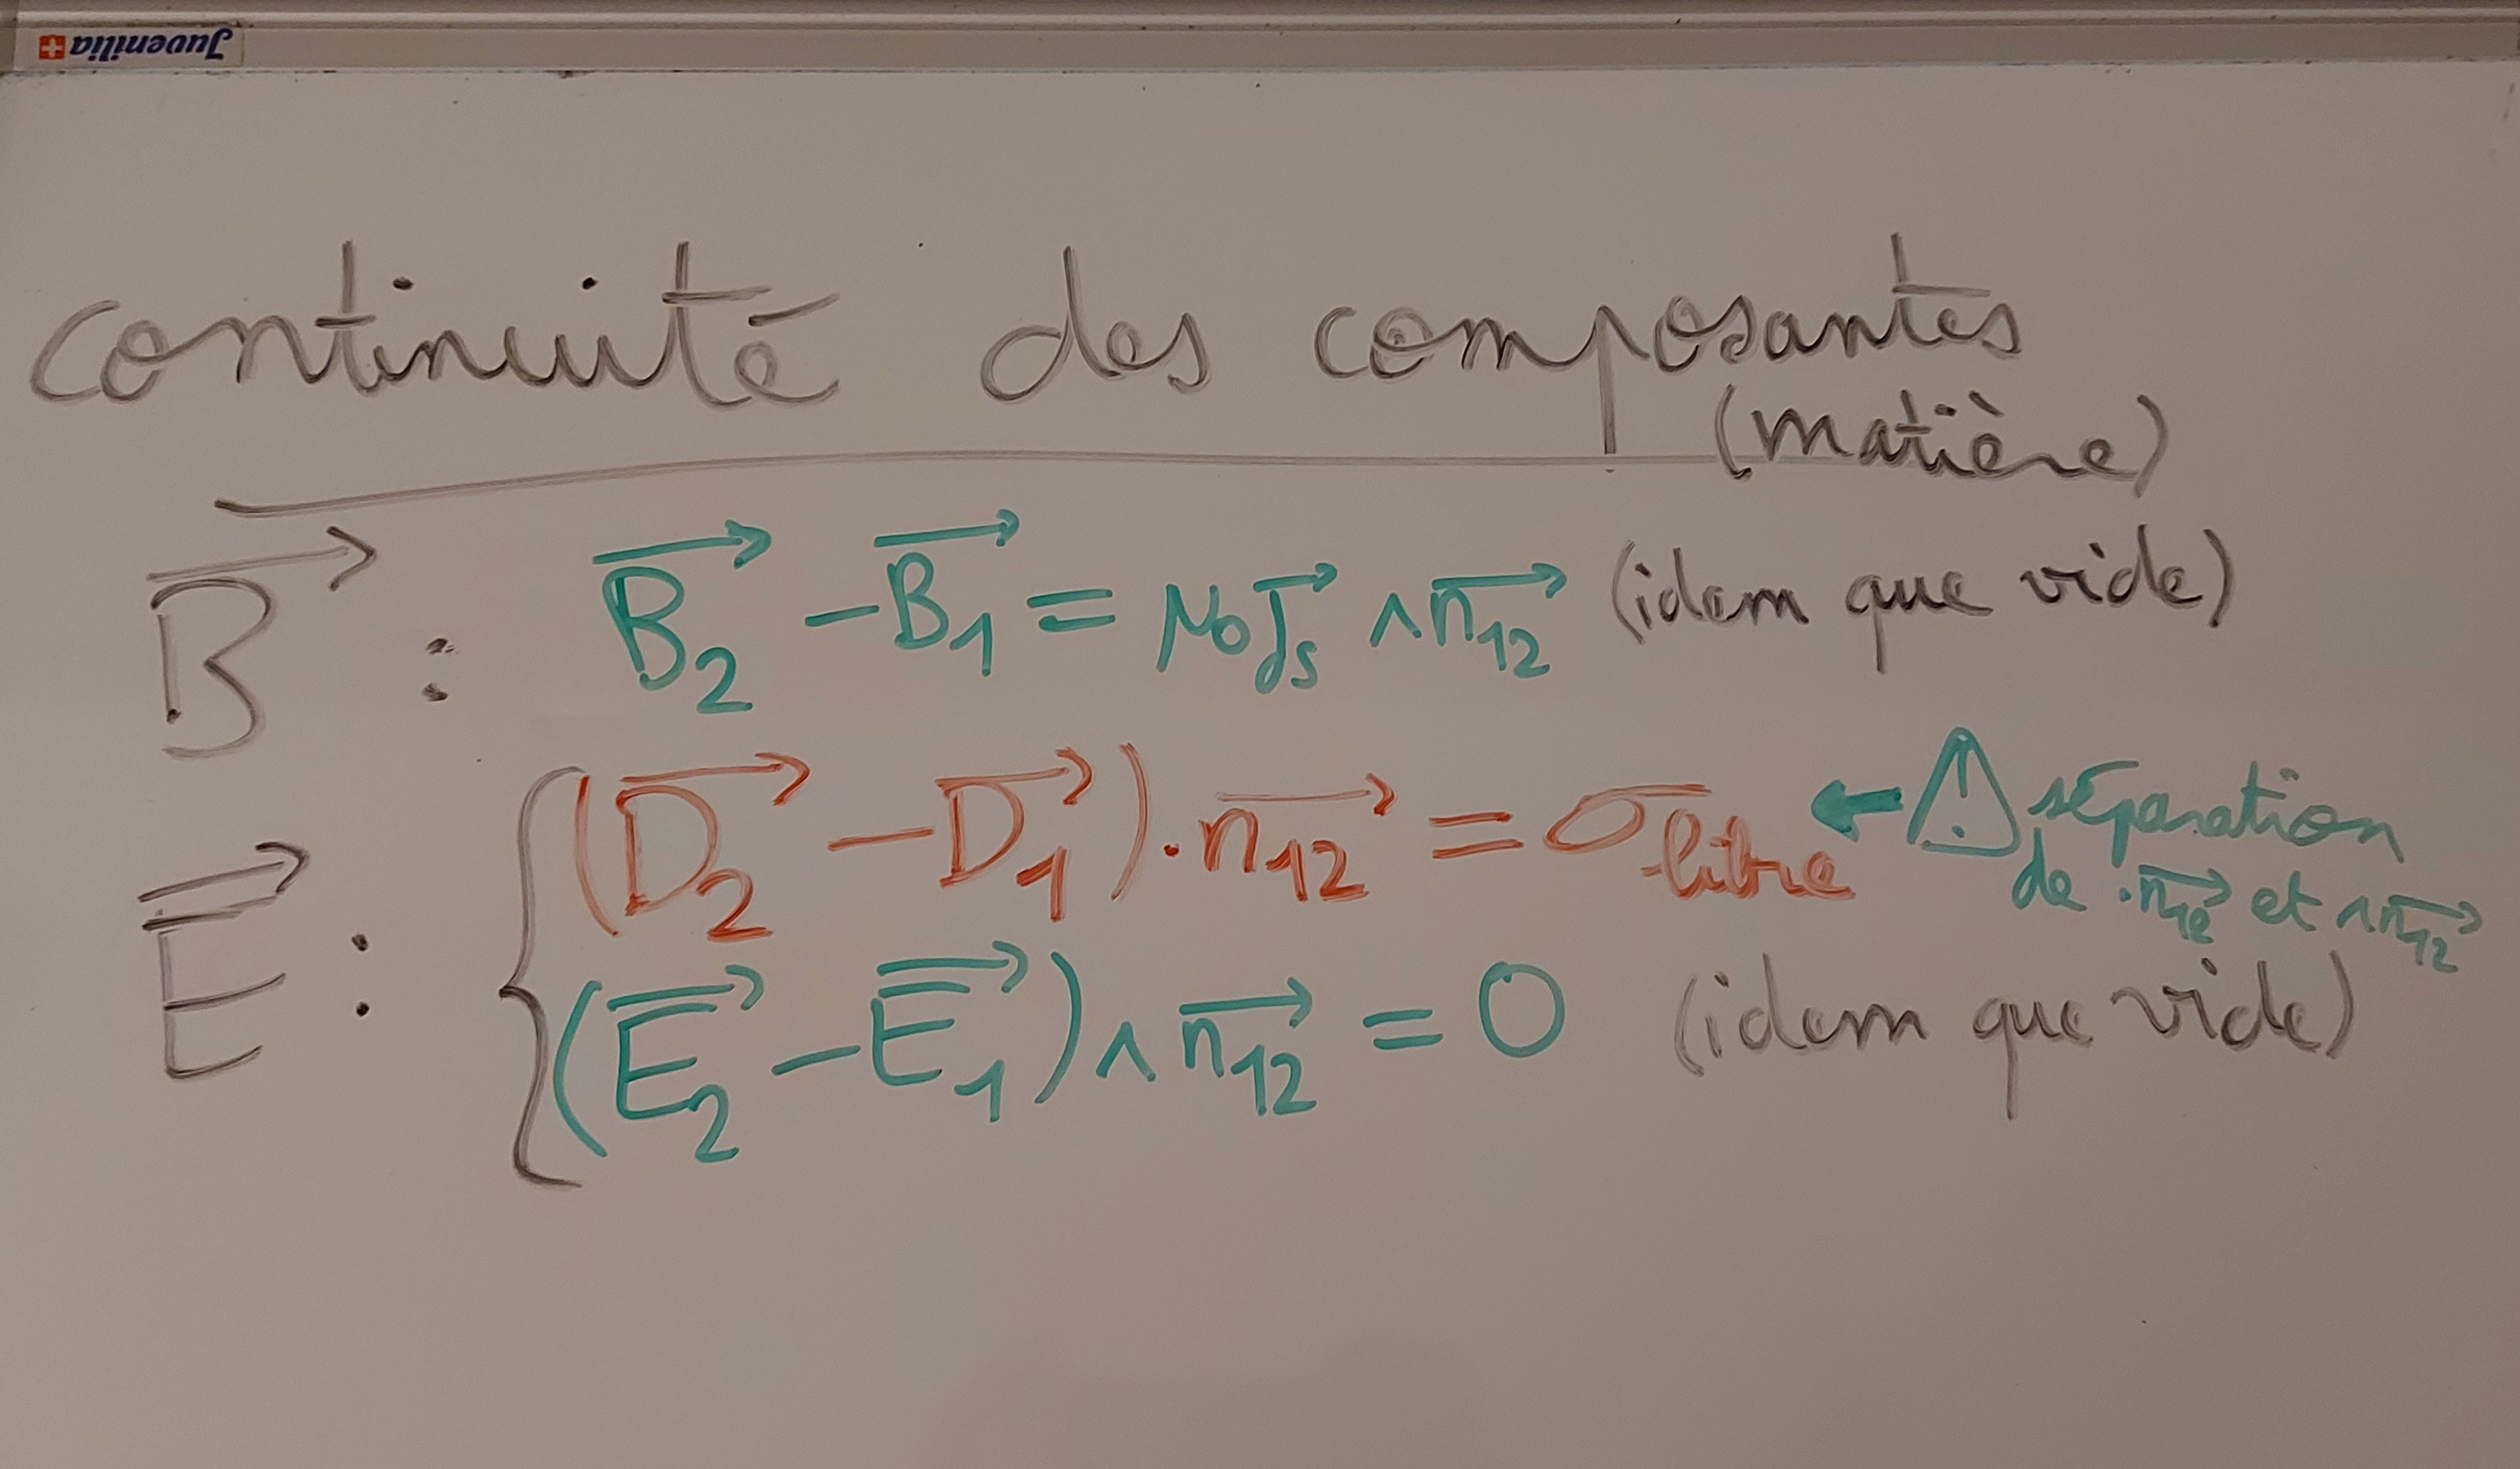 Juvenilia
continuité des composantes
(matière)
B⃗ : B₂⃗ - B₁⃗ = μ₀ jₛ⃗ ∧ n₁₂⃗ (idem que vide)
E⃗ : { (D₂⃗ - D₁⃗) . n₁₂⃗ = σ libre ← ⚠ séparation
de . n₁₂⃗ et ∧ n₁₂⃗
(E₂⃗ - E₁⃗) ∧ n₁₂⃗ = 0 (idem que vide)